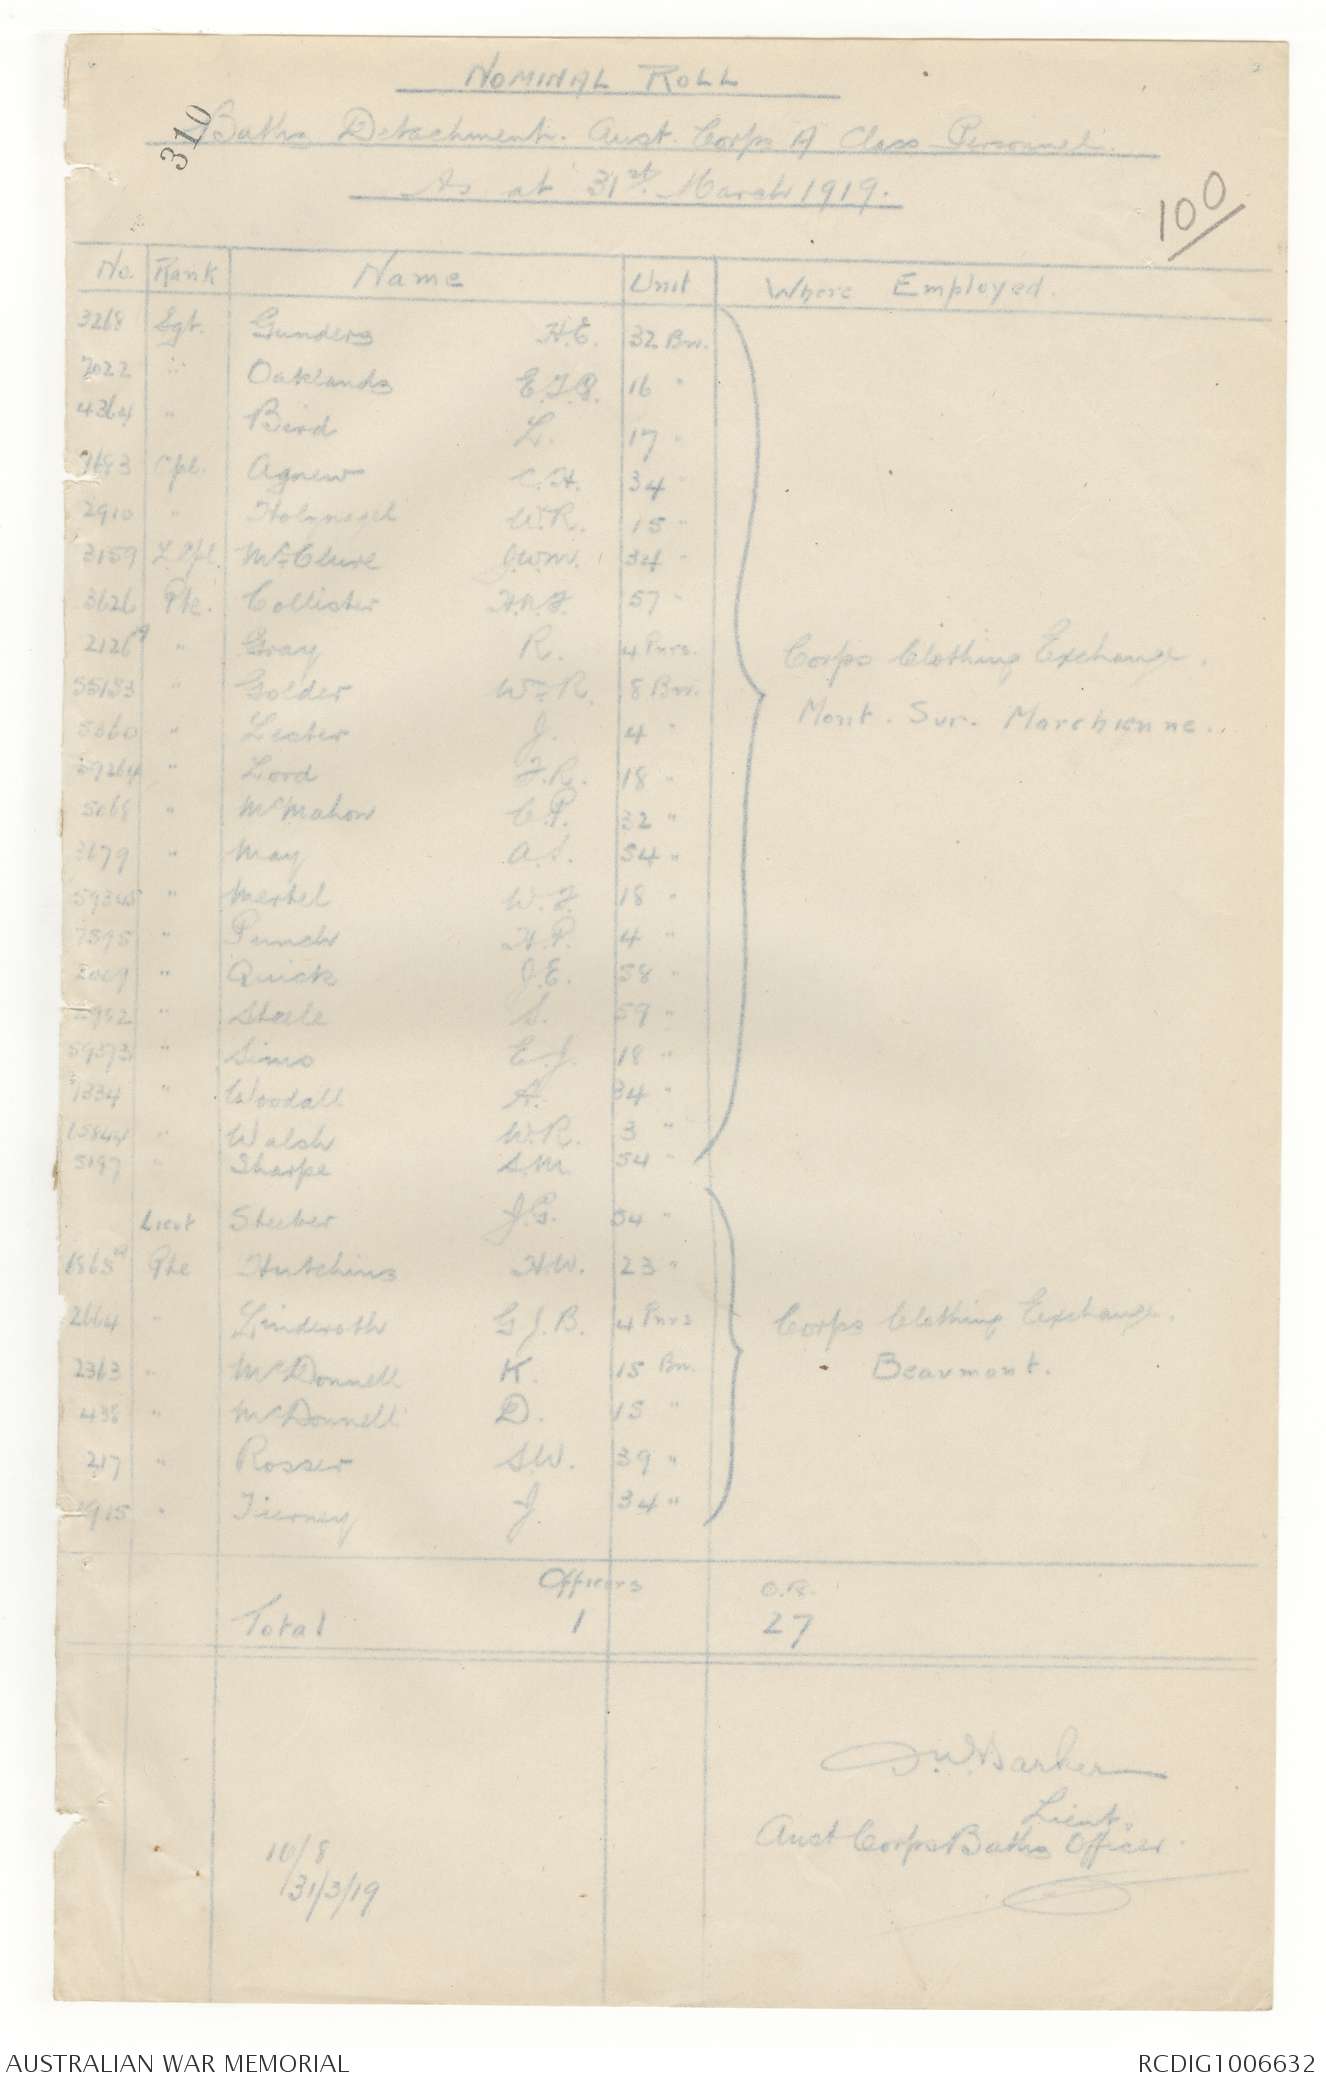 NOMINAL ROLL
310
Baths Detachment. Aust. Corps A Class Personnel.
As at 31st. March 1919.
100
No. Rank Name Unit Where Employed.
3268 Sgt. Gunders H.E. 32 Bn.
7022 " Oaklands E.T.P. 16 "
4364 " Bird L. 17 "
7683 Cpl. Agnew C.H. 34 "
2910 " W.R. 15 "
3159 L Cpl. McClure J.W.M. 34 "
3626 Pte. Collister H.N.F. 57 "
2126A " Gray R. 4 Pnrs.
55153 " Golder W.F.R. 8 Bn.
5060 " Lester J. 4 "
" Lord F.R. 18 "
5068 " McMahon C.P. 32 "
3179 " May A.S. 54 "
59345 " Mertel W.F. 18 "
7595 " Punch H.P. 4 "
" Quick J.E. 58 "
" Steele S. 59 "
59373 " Sims E.J. 18 "
1334 " Woodall A. 34 "
15844 " Walsh W.R. 3 "
5197 " Sharpe S.M. 54 "
Corps Clothing Exchange.
Mont. Sur. Marchienne..
Lieut Steeber J.G. 54 "
1865A Pte Hutchins H.W. 23 "
2664 " Linderoth G.J.B. 4 Pnrs
2363 " McDonnell K. 15 Bn.
438 " McDonnell D. 15 "
217 " Rosser S.W. 39 "
1915 " Tierney J. 34 "
Corps Clothing Exchange.
Beaumont.
Officers O.R.
Total 1 27
Barker
Lieut.
Aust Corps Baths Officer.
10/8
31/3/19
AUSTRALIAN WAR MEMORIAL
RCDIG1006632